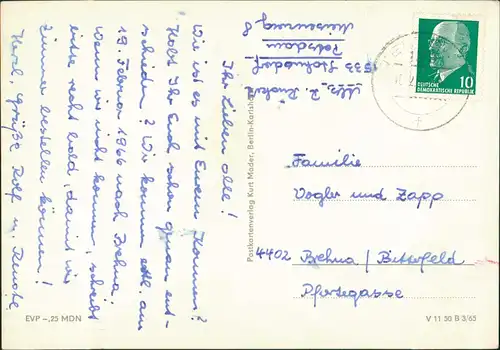 Ihr Lieben alle!
Wie ist es mit Eurem Kommen?
Habt Ihr Euch schon genau ent-
schieden? Wir kommen evtl. am
19. Februar 1966 nach Brehna.
Wenn wir nicht kommen, schreibt
bitte recht bald, damit wir
Zimmer bestellen können!
Herzl. Grüße Rolf u. Renate
Abs. R.
Potsdam
8
Postkartenverlag Kurt Mader, Berlin-Karlsh
DEUTSCHE
DEMOKRATISCHE REPUBLIK
10
Familie
Vogler und Zapp
4402 Brehna / Bitterfeld
Pforzegasse
EVP -,25 MDN
V 11 50 B 3/65